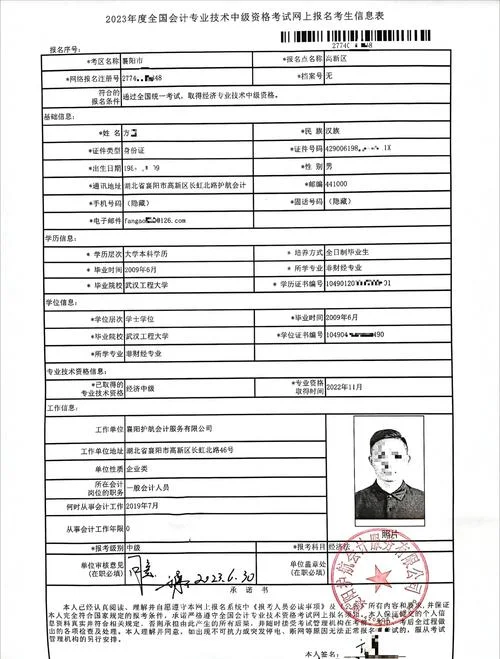 2023年度全国会计专业技术中级资格考试网上报名考生信息表
报名序号: 2774 48
*考区名称 襄阳市 *报名点名称 高新区
*网络报名注册号 2774 48 *档案号 无
符合的
*报名条件 通过全国统一考试，取得经济专业技术中级资格。
基础信息:
*姓 名 方 *民 族 汉族
*证件类型 身份证 *证件号码 429006198 1X
*出生日期 *性 别 男
*通讯地址 湖北省襄阳市高新区长虹北路护航会计 *邮编 441000
*手机号码 (隐藏) *固话号码 (隐藏)
*电子邮箱 fangao @126.com
学历信息:
* 学历层次 大学本科学历 * 培养方式 全日制毕业生
* 毕业时间 2009年6月 * 所学专业 非财经专业
* 毕业院校 武汉工程大学 * 学历证书编号 10490120 01
学位信息:
*学位层次 学士学位 *毕业时间 2009年6月
*毕业院校 武汉工程大学 *学位证书编号 104904 490
*所学专业 非财经专业
专业技术资格信息:
*已取得的
专业技术资格 经济中级 *专业资格
取得时间 2022年11月
工作信息:
工作单位 襄阳护航会计服务有限公司
*工作单位地址 湖北省襄阳市高新区长虹北路46号
单位性质 企业类
所在会计
岗位的职务 一般会计人员
何时从事会计工作 2019年7月
从事会计工作年限 0
照片
*报考级别 中级 *报考科目 经济法
单位审核意见
(在职必填) 2023.6.30 单位盖章处
(在职必填)
承 诺 书
本人已经认真阅读、理解并自愿遵守本网上报名系统中《报考人员必读事项》及公告 所有内容和要求，并保证
本人完全符合国家规定的报考条件，承诺严格遵守全国会计专业技术资格考试网上报名规定。本人保证提交的个人信
息资料真实并符合相关规定，否则承担由此产生的所有后果，并随时接受考试管理机构在考前、考中、考后全过程做
出的各项检查及处理。本人理解并同意，如出现不可抗力或突发停电、断网等原因无法正常报名 ，服从考试
管理机构的另行安排。